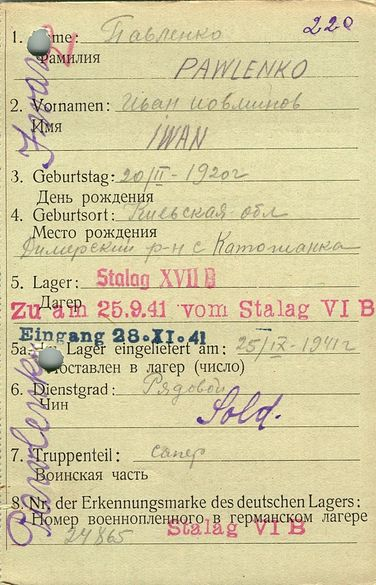 220
1. Name: Павленко
Фамилия
PAWLENKO
2. Vornamen: Иван
Имя
IWAN
3. Geburtstag: 20/II - 1920г
День рождения
4. Geburtsort: Киевская обл
Место рождения
Димерский р-н с Катюжанка
5. Lager: Stalag XVII B
Лагер
Zu am 25.9.41 vom Stalag VI B
Eingang 28.XI.41
5a. Lager eingeliefert am: 25/IX - 1941г
Доставлен в лагер (число)
6. Dienstgrad: Рядовой
Чин
Sold.
7. Truppenteil: сапер
Воинская часть
8. Nr. der Erkennungsmarke des deutschen Lagers:
Номер военнопленного в германском лагере
24865 Stalag VI B
Pawlenko Iwan